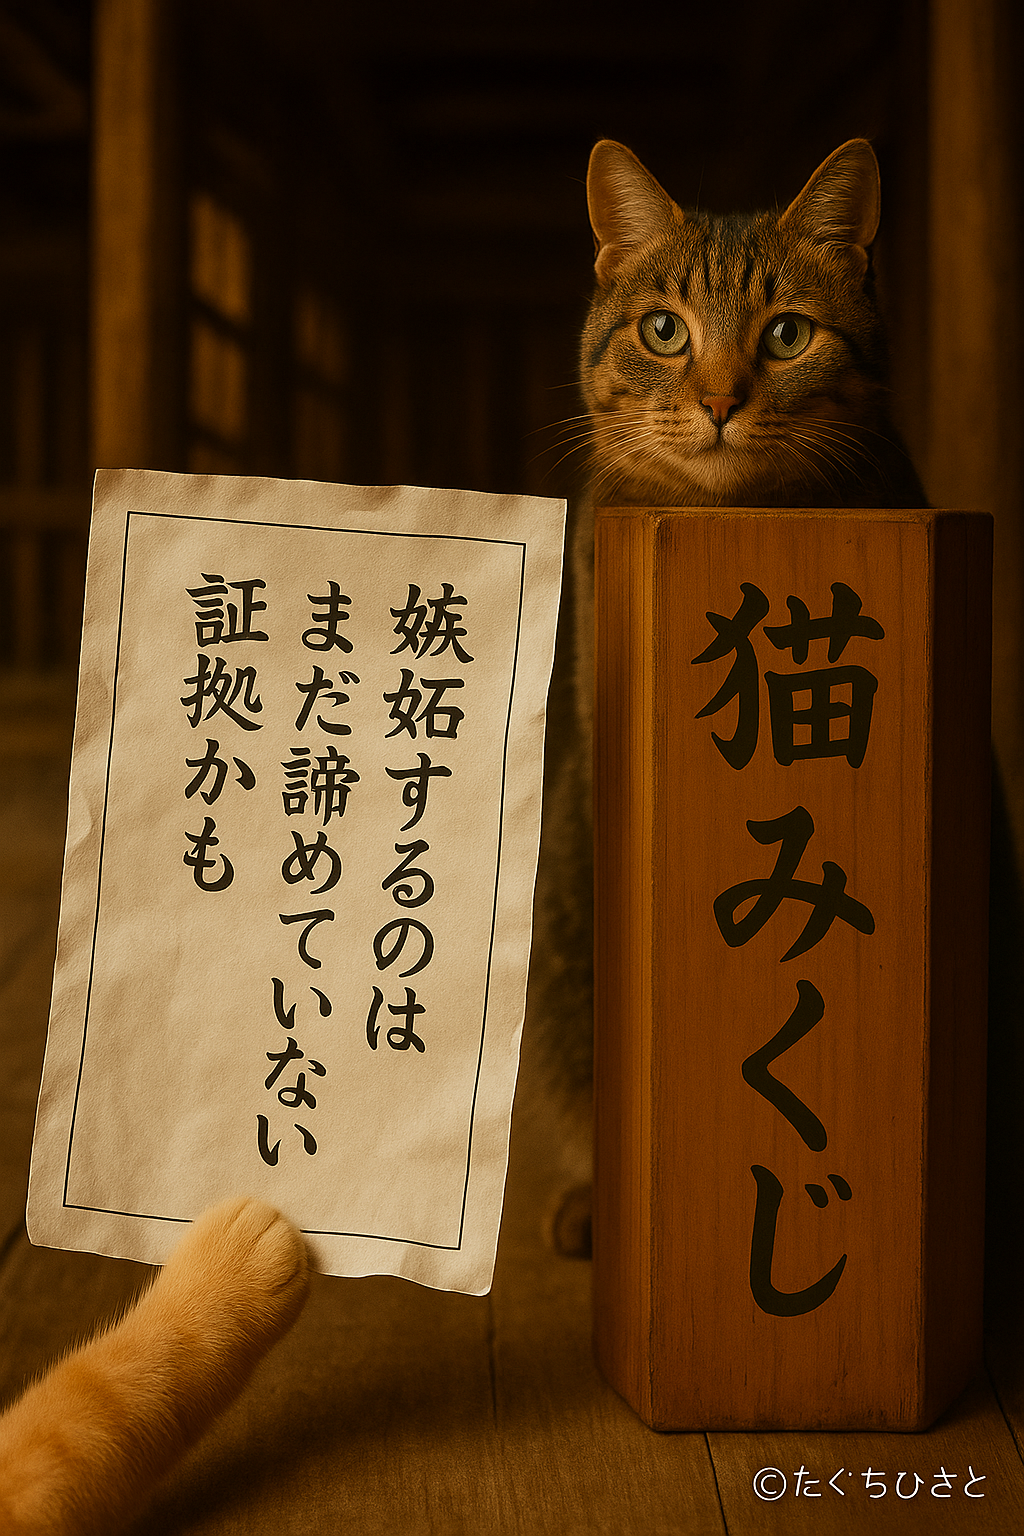 嫉妬するのは
まだ諦めていない
証拠かも
猫みくじ
©たぐちひさと